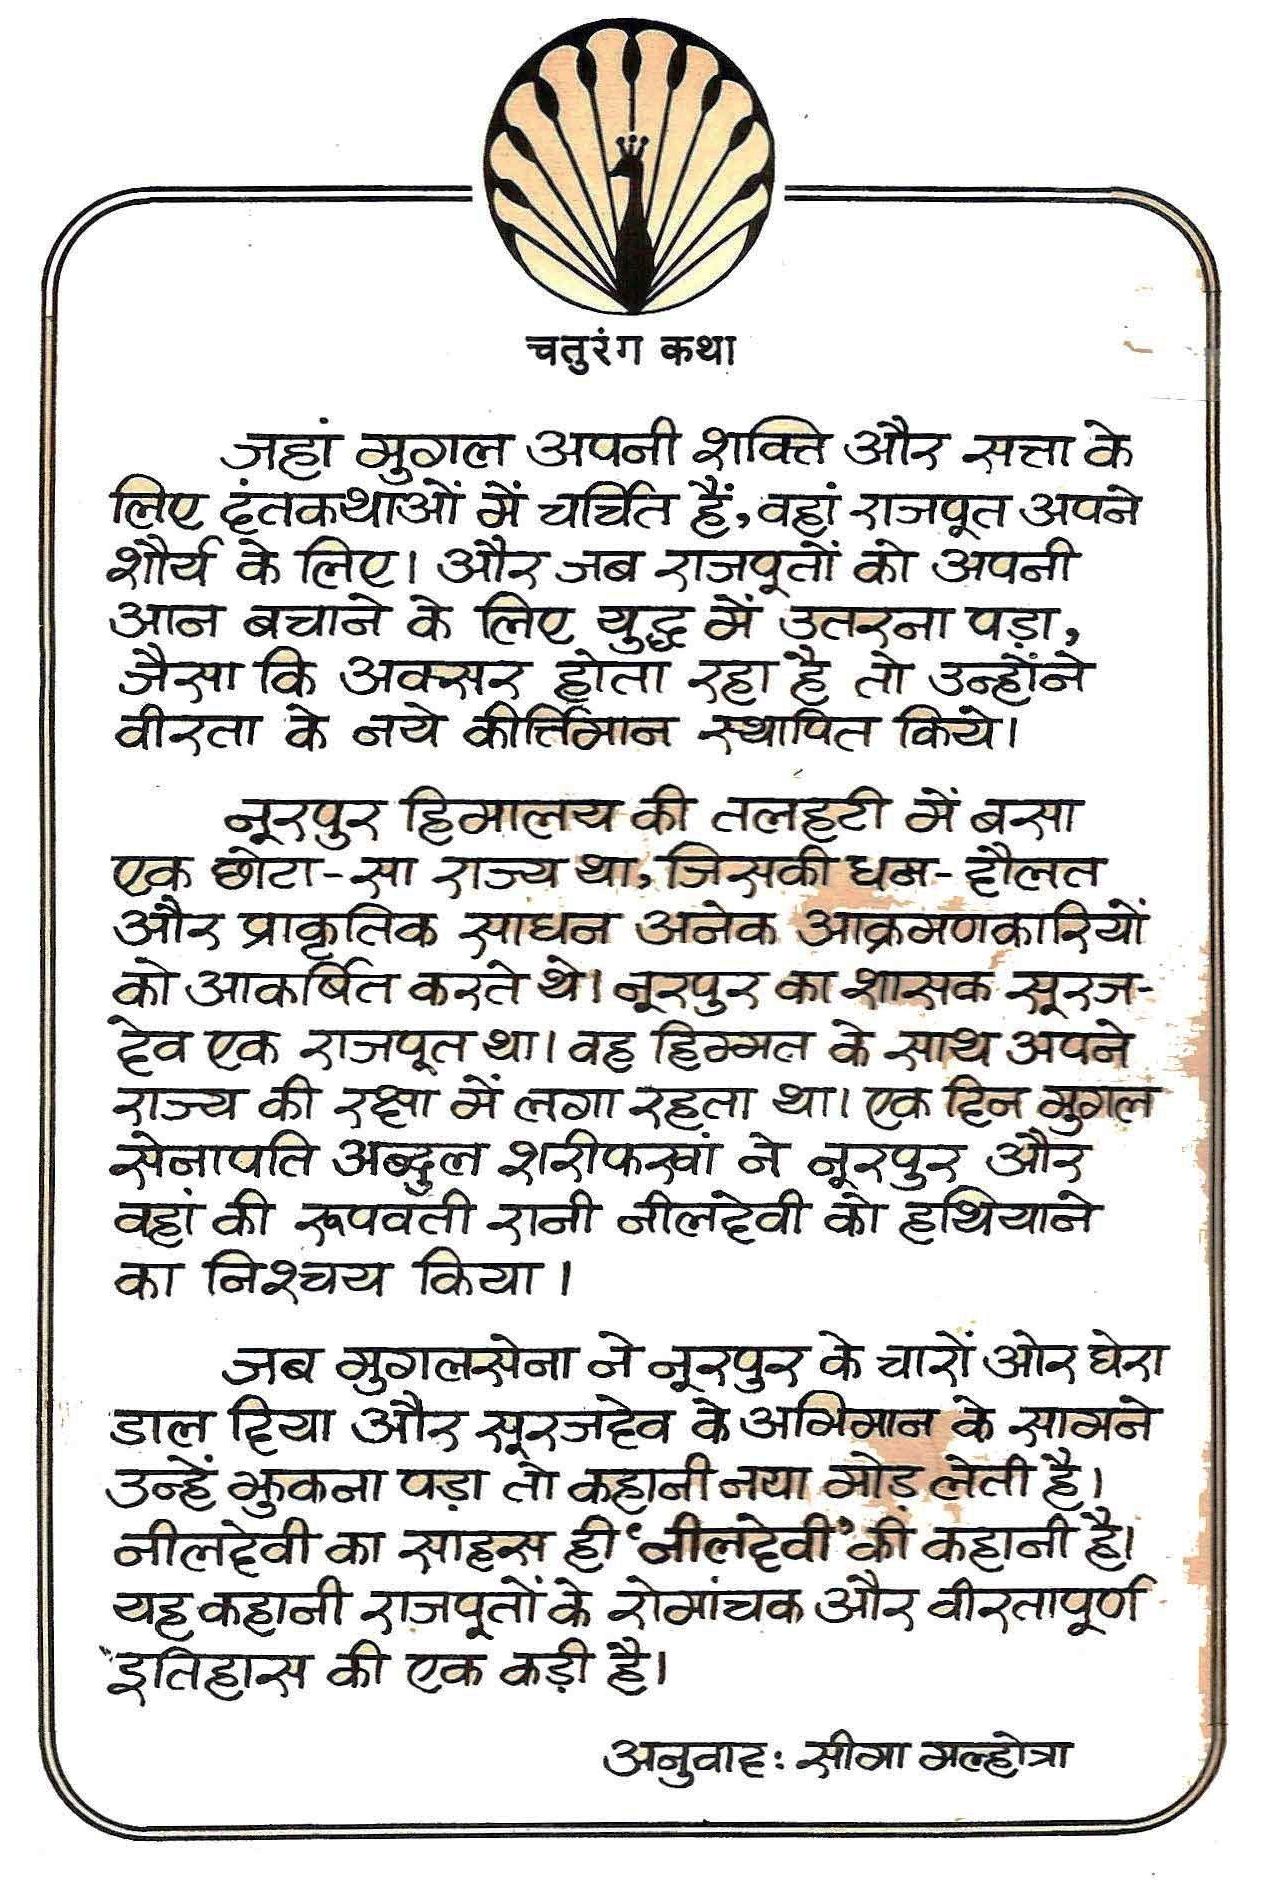 चतुरंग कथा
जहां मुगल अपनी शक्ति और सत्ता के
लिए दंतकथाओं में चर्चित हैं, वहां राजपूत अपने
शौर्य के लिए। और जब राजपूतों को अपनी
आन बचाने के लिए युद्ध में उतरना पड़ा,
जैसा कि अक्सर होता रहा है तो उन्होंने
वीरता के नये कीर्त्तिमान स्थापित किये।
नूरपुर हिमालय की तलहटी में बसा
एक छोटा-सा राज्य था, जिसकी धन-दौलत
और प्राकृतिक साधन अनेक आक्रमणकारियों
को आकर्षित करते थे। नूरपुर का शासक सूरज-
देव एक राजपूत था। वह हिम्मत के साथ अपने
राज्य की रक्षा में लगा रहता था। एक दिन मुगल
सेनापति अब्दुल शरीफखां ने नूरपुर और
वहां की रूपवती रानी नीलदेवी को हथियाने
का निश्चय किया।
जब मुगलसेना ने नूरपुर के चारों ओर घेरा
डाल दिया और सूरजदेव के अभिमान के सामने
उन्हें झुकना पड़ा तो कहानी नया मोड़ लेती है।
नीलदेवी का साहस ही 'नीलदेवी' की कहानी है।
यह कहानी राजपूतों के रोमांचक और वीरतापूर्ण
इतिहास की एक कड़ी है।
अनुवाद: सीमा मल्होत्रा